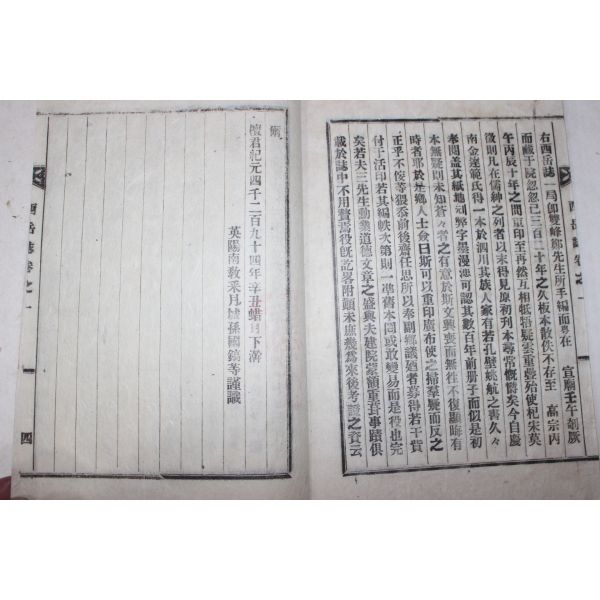 右西岳誌一局卽雙峰鄭先生所手編而粤在 宣廟壬午剞厥
而藏于屍忽忽已三百二十年之久板本散佚不存至 高宗丙
午丙辰十年之間重印至再然互相牴牾疑雲重疊殆使杞宋莫
徵則凡在儒紳之列者以末得見原初刊本尋常慨鬱矣今自慶
南金達範氏得一本於泗川其族人家有若孔壁姚航之喪久々
奉閱盖其紙地刓弊字墨漫漶可認其數百年前册子而似是初
本無疑則未知蒼々者之有意於斯文興喪而無往不復顯晦有
時者耶於是鄕人士僉曰斯可以重印廣布使之掃羣疑而反之
正乎不佞等猥忝前後齋任思所以奉副鄕議迺者募得若干貲
付于活印若其編帙次第則一準舊本罔或敢變易而是役也完
矣若夫三先生勳業道德文章之盛與夫建院蒙額重葺事蹟俱
載於誌中不用贅焉役旣訖畧附顚末庶幾爲來後考證之資云
爾
檀君紀元四千二百九十四年辛丑蜡月下澣
英陽南敎采月城孫國鎬等謹識
西岳誌卷之一
四
西岳誌卷之一